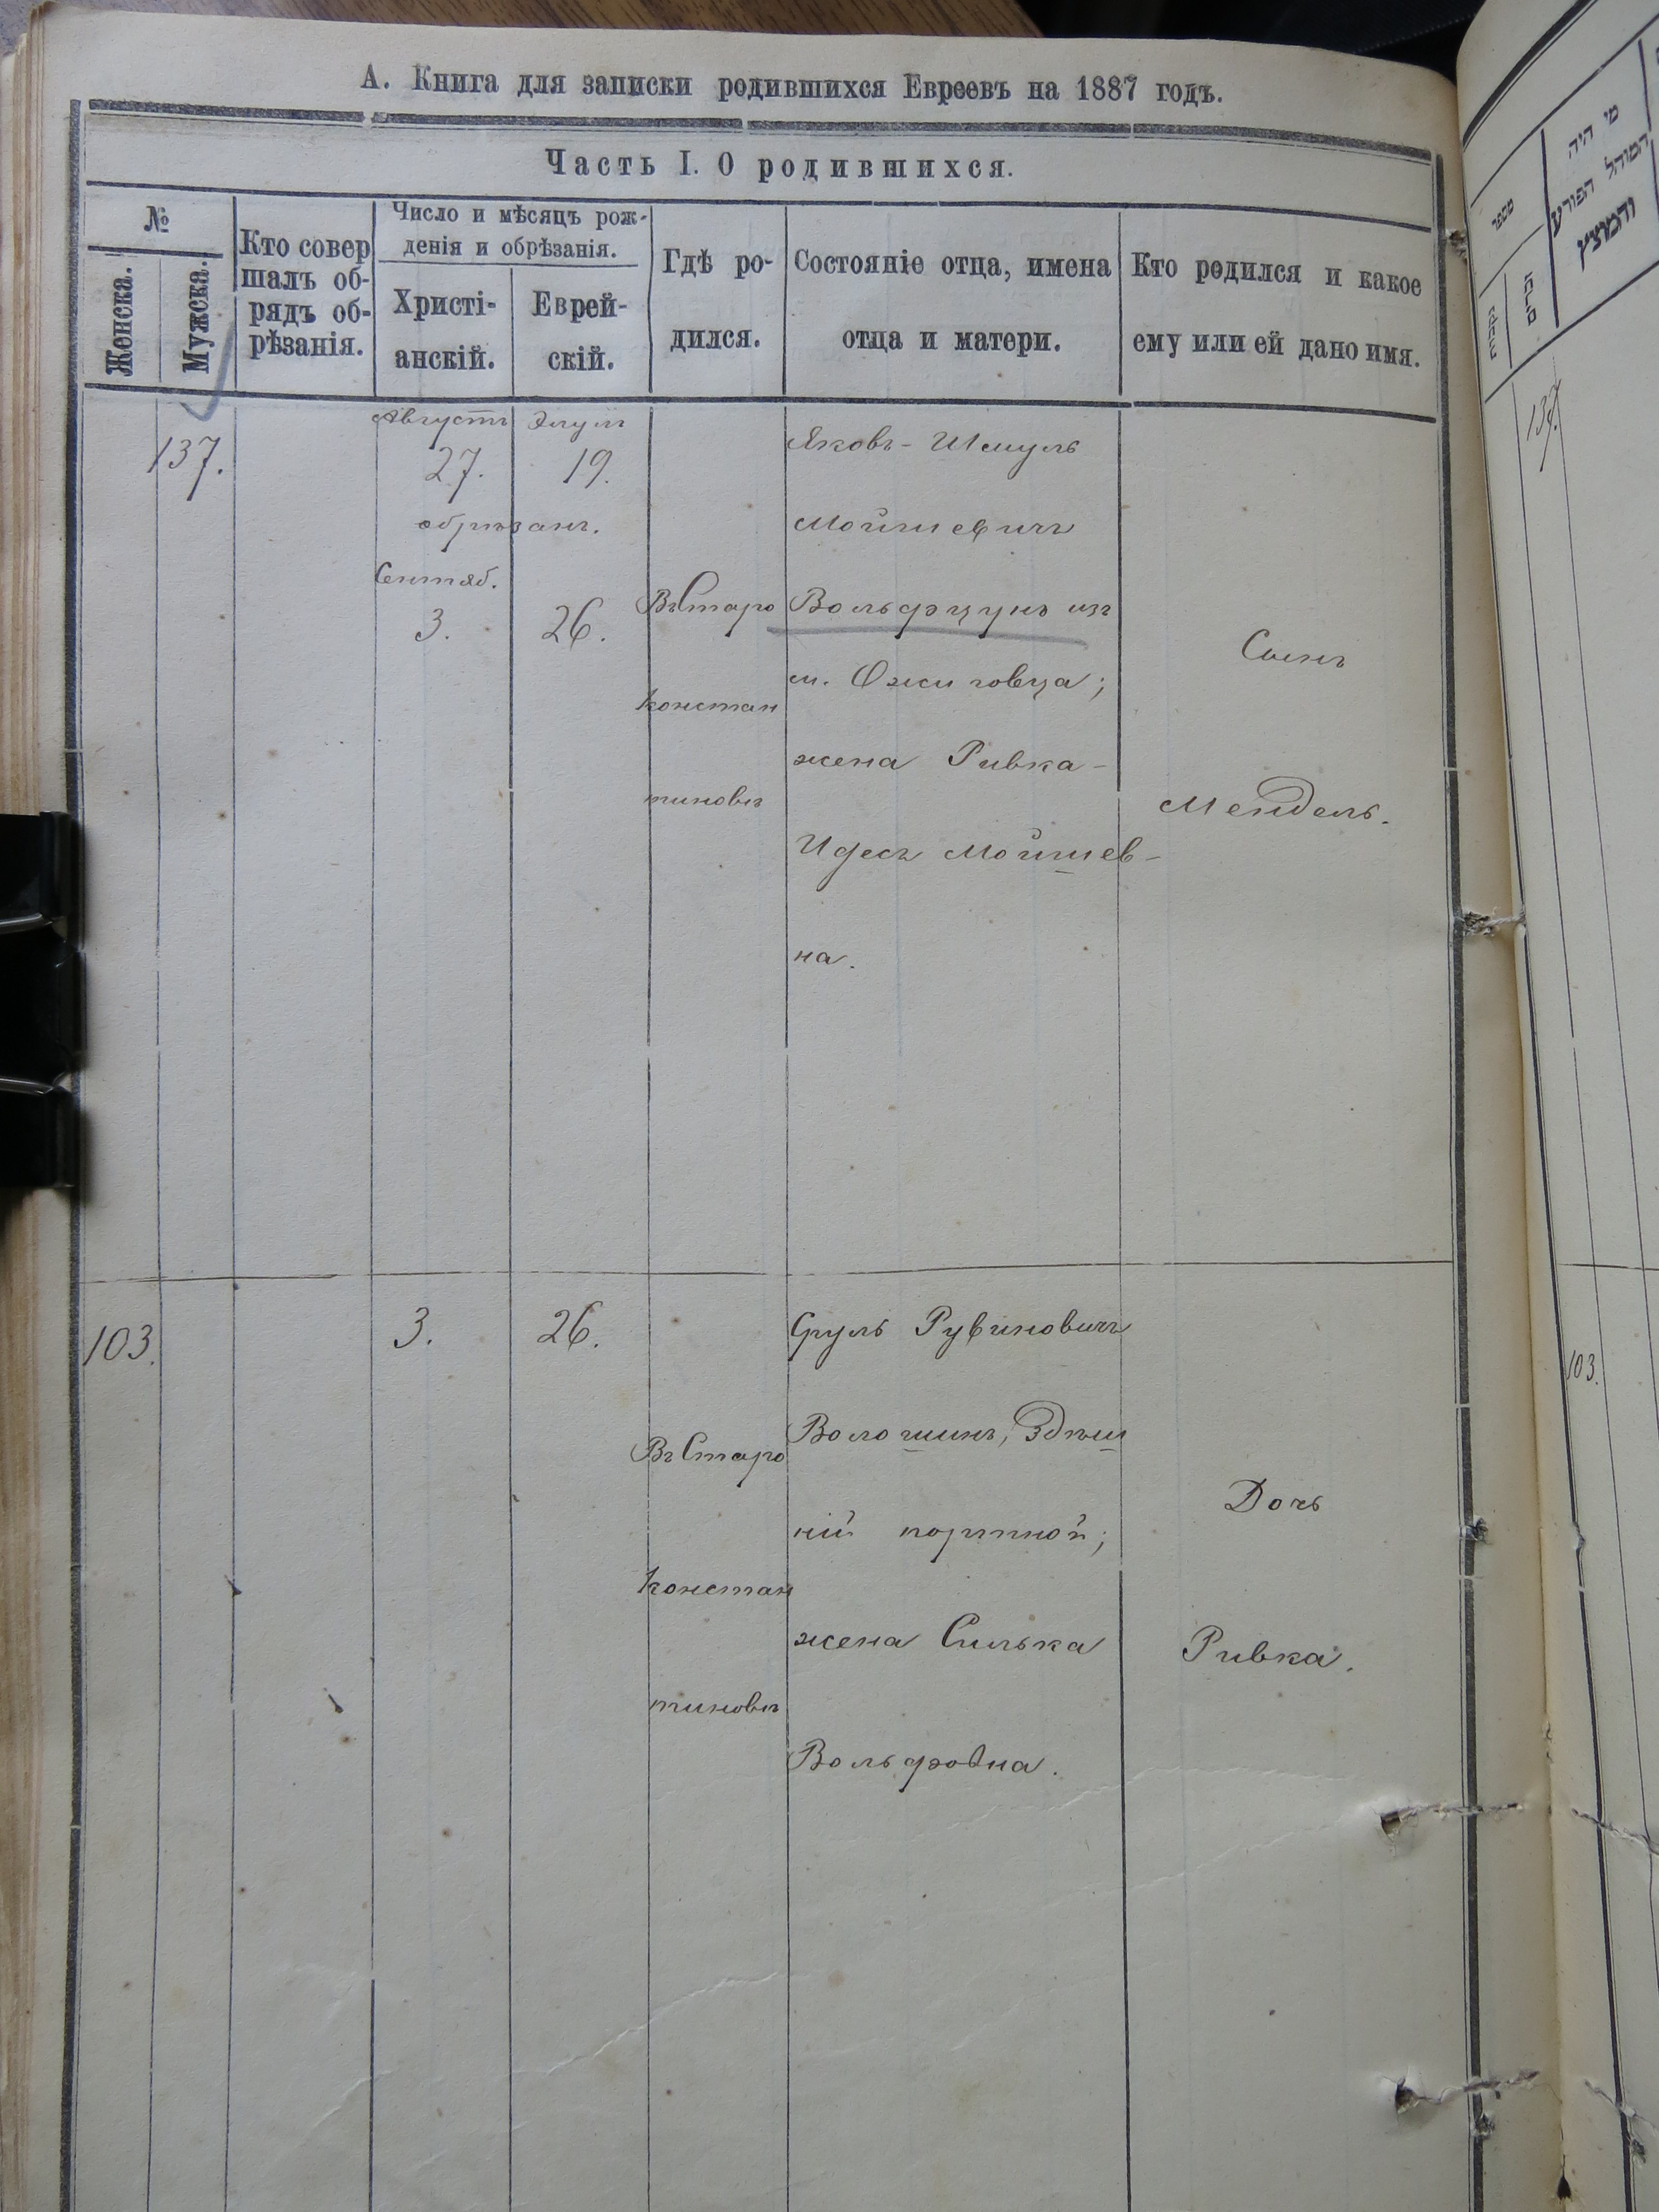 А. Книга для записки родившихся Евреевъ на 1887 годъ.
Часть I. О родившихся.
№
Женска.
Мужска.
Кто совер
шалъ об-
рядъ об-
рѣзанія.
Число и мѣсяцъ рож-
денія и обрѣзанія.
Христі-
анскій.
Еврей-
скій.
Гдѣ ро-
дился.
Состояніе отца, имена
отца и матери.
Кто родился и какое
ему или ей дано имя.
137.
Августъ
27.
Элулъ
19.
обрѣзанъ.
Сентяб.
3.
26.
Въ Старо
констан
тиновѣ
Яковъ-Шмуль
Мойшевичъ
Вольфцунъ изъ
м. Ожиговца;
жена Ривка-
Идесъ Мойшев-
на.
Сынъ
Мендель.
103.
3.
26.
Въ Старо
констан
тиновѣ
Сруль Рувиновичъ
Волошинъ, Здѣш
ній портной;
жена Силька
Вольфовна.
Дочь
Ривка.
מי היה
המוהל הפורע
והמוצץ
מספר
זכרים
137.
103.